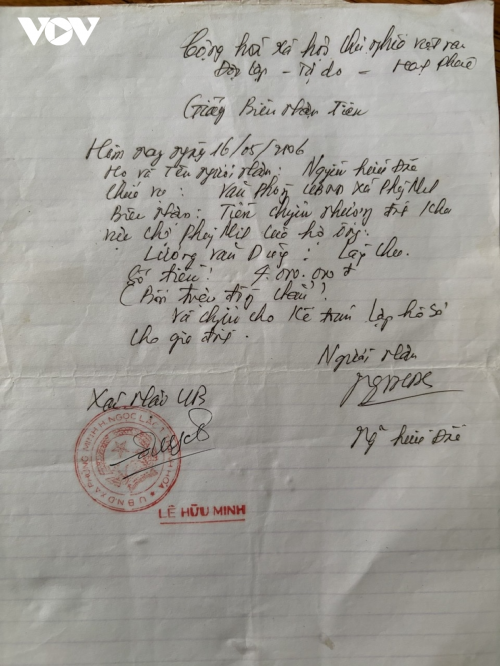 VOV
Cộng hoà xã hội chủ nghĩa việt nam
Độc lập - Tự do - Hạnh phúc
Giấy Biên nhận Tiền
Hôm nay ngày 16/05/2006
Họ và Tên người nhận: Nguyễn hữu
Chức vụ: Văn phòng UBND xã
Biên nhận: Tiền chuyển nhượng đất khu
vực chợ của hộ ông.
Lương văn : Lấy cho.
Số tiền: 4.000.000đ
(Bốn triệu đồng chẵn).
Và chịu cho Kế toán lập hồ sơ
cho
Người nhận
Xác nhận UB
Ng hữu
LÊ HỮU MINH